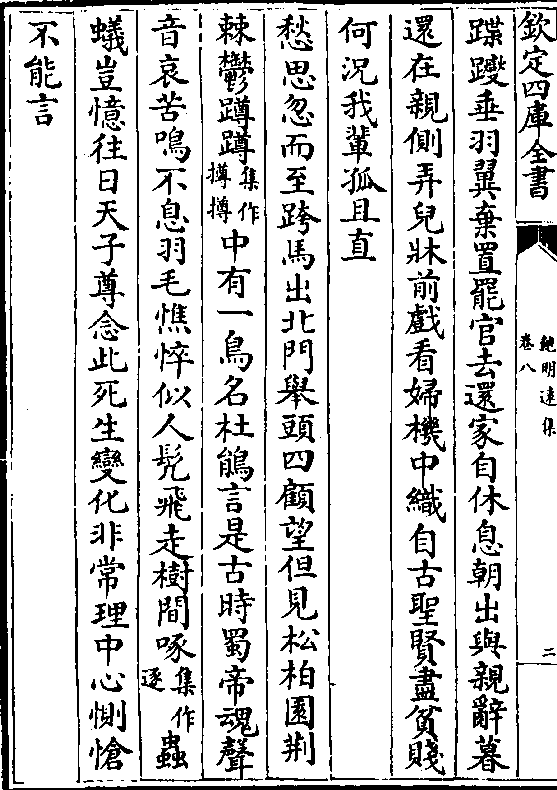 欽定四庫全書
鮑明逺集
卷八
二
蹀躞垂羽翼棄置罷官去還家自休息朝出與親辭暮
還在親側弄兒牀前戲看婦機中織自古聖賢盡貧賤
何況我輩孤且直
愁思忽而至跨馬出北門舉頭四顧望但見松柏園荆
棘鬱蹲蹲集作撙撙中有一鳥名杜鵑言是古時蜀帝魂聲
音哀苦鳴不息羽毛憔悴似人髠飛走樹間啄集作逐蟲
蟻豈憶往日天子尊念此死生變化非常理中心惻愴
不能言